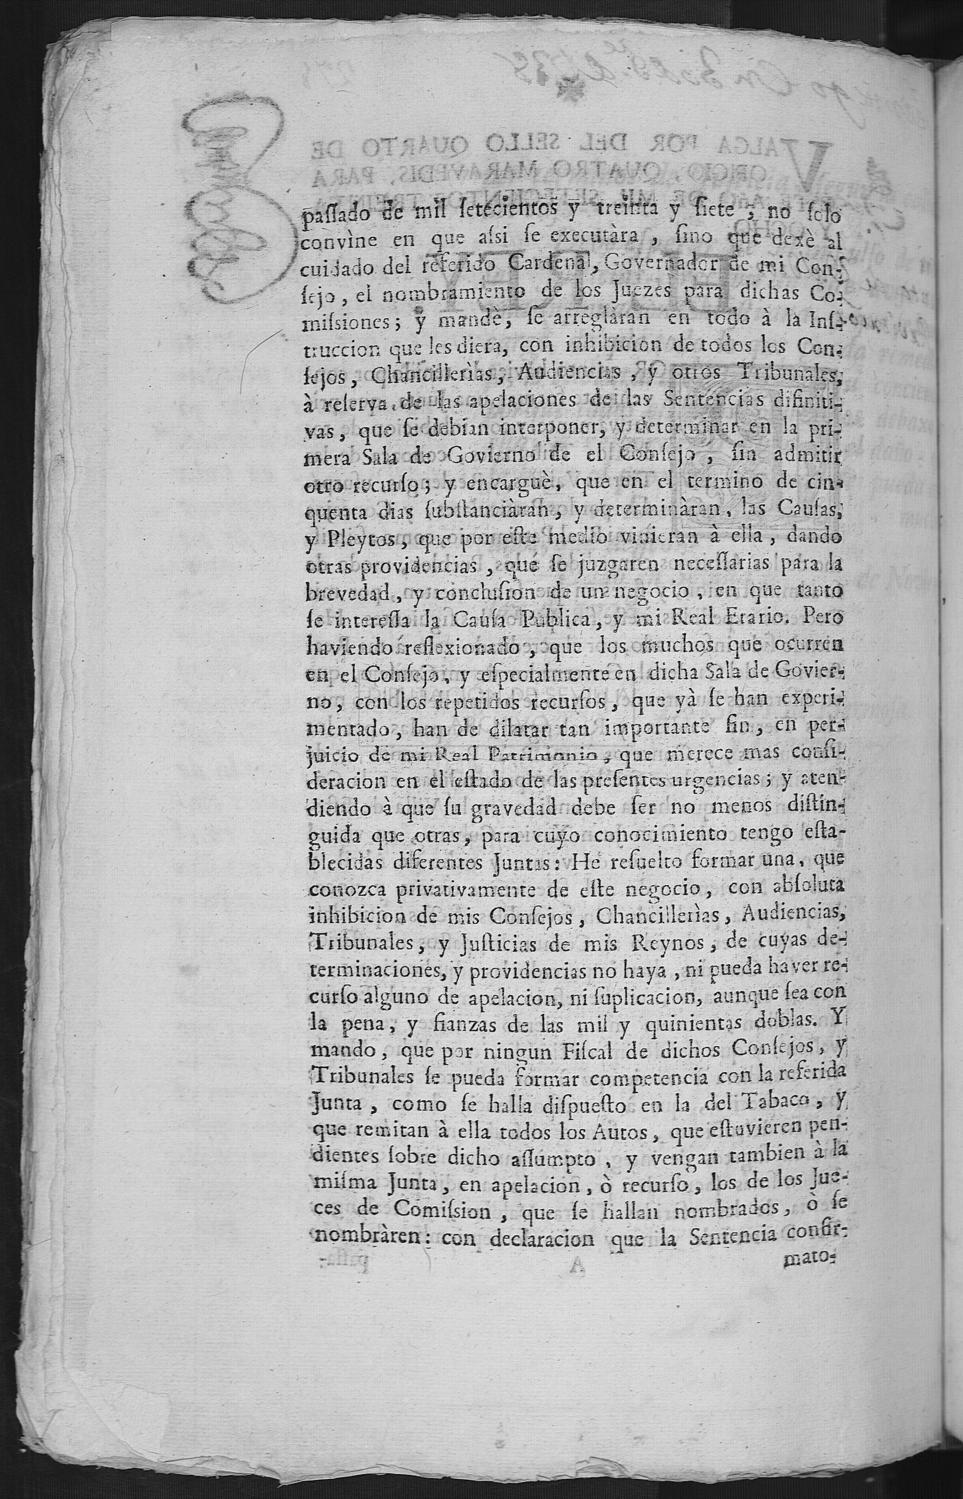 passado de mil setecientos y treinta y siete; no solo
convìne en que assi se executàra, sino que dexè al
cuidado del referido Cardenal, Governador de mi Con-
sejo, el nombramiento de los Juezes para dichas Co-
missiones; y mandè, se arreglàran en todo à la Ins-
truccion que les diera, con inhibicion de todos los Con-
sejos, Chancillerìas, Audiencias, y otros Tribunales,
à reserva de las apelaciones de las Sentencias difiniti-
vas, que se debian interponer, y determinar en la pri-
mera Sala de Govierno de el Consejo, sin admitir
otro recurso; y encarguè, que en el termino de cin-
quenta dias substanciàran, y determinàran, las Causas,
y Pleytos, que por este medio vinieran à ella, dando
otras providencias, que se juzgaren necessarias para la
brevedad, y conclusion de un negocio, en que tanto
se interessa la Causa Publica, y mi Real Erario. Pero
haviendo reflexionado, que los muchos que ocurren
en el Consejo, y especialmente en dicha Sala de Govier-
no, con los repetidos recursos, que yà se han experi-
mentado, han de dilatar tan importante fin, en per-
juicio de mi Real Patrimonio, que merece mas consi-
deracion en el estado de las presentes urgencias; y aten-
diendo à que su gravedad debe ser no menos distin-
guida que otras, para cuyo conocimiento tengo esta-
blecidas diferentes Juntas: He resuelto formar una, que
conozca privativamente de este negocio, con absoluta
inhibicion de mis Consejos, Chancillerìas, Audiencias,
Tribunales, y Justicias de mis Reynos, de cuyas de-
terminaciones, y providencias no haya, ni pueda haver re-
curso alguno de apelacion, ni suplicacion, aunque sea con
la pena, y fianzas de las mil y quinientas doblas. Y
mando, que por ningun Fiscal de dichos Consejos, y
Tribunales se pueda formar competencia con la referida
Junta, como se halla dispuesto en la del Tabaco, y
que remitan à ella todos los Autos, que estuvieren pen-
dientes sobre dicho assumpto, y vengan tambien à la
misma Junta, en apelacion, ò recurso, los de los Jue-
ces de Comission, que se hallan nombrados, ò se
nombràren: con declaracion que la Sentencia confir-
mato-